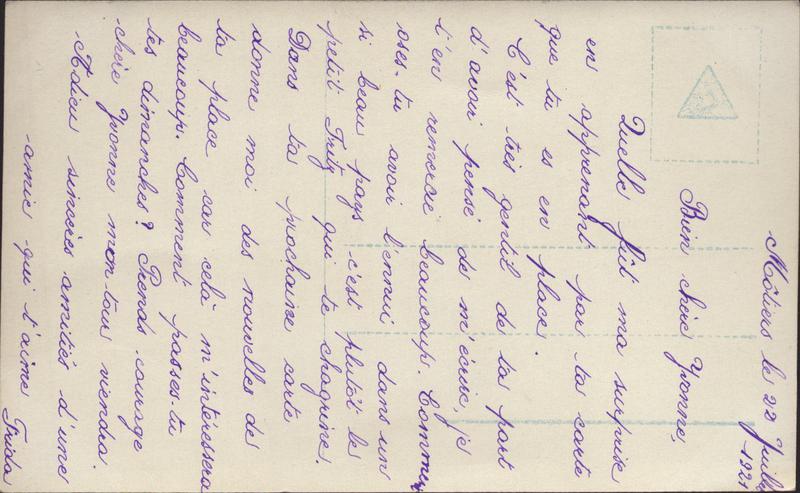 Môtiers le 22 Juillet
1921
Bien chère Yvonne,
Quelle fût ma surprise
en apprenant par ta carte
que tu es en place.
C'est très gentil de ta part
d'avoir pensé de m'écrire, je
t'en remercie beaucoup. Comment
oses-tu avoir l'ennui dans un
si beau pays c'est plutôt le
petit Fritz qui te chagrine.
Dans ta prochaine carte
donne moi des nouvelles de
ta place car celà m'intéressera
beaucoup. Comment passes-tu
tes dimanches? Prends courage
chère Yvonne mon tour viendra.
Adieu sincères amitiés d'une
amie qui t'aime Frida